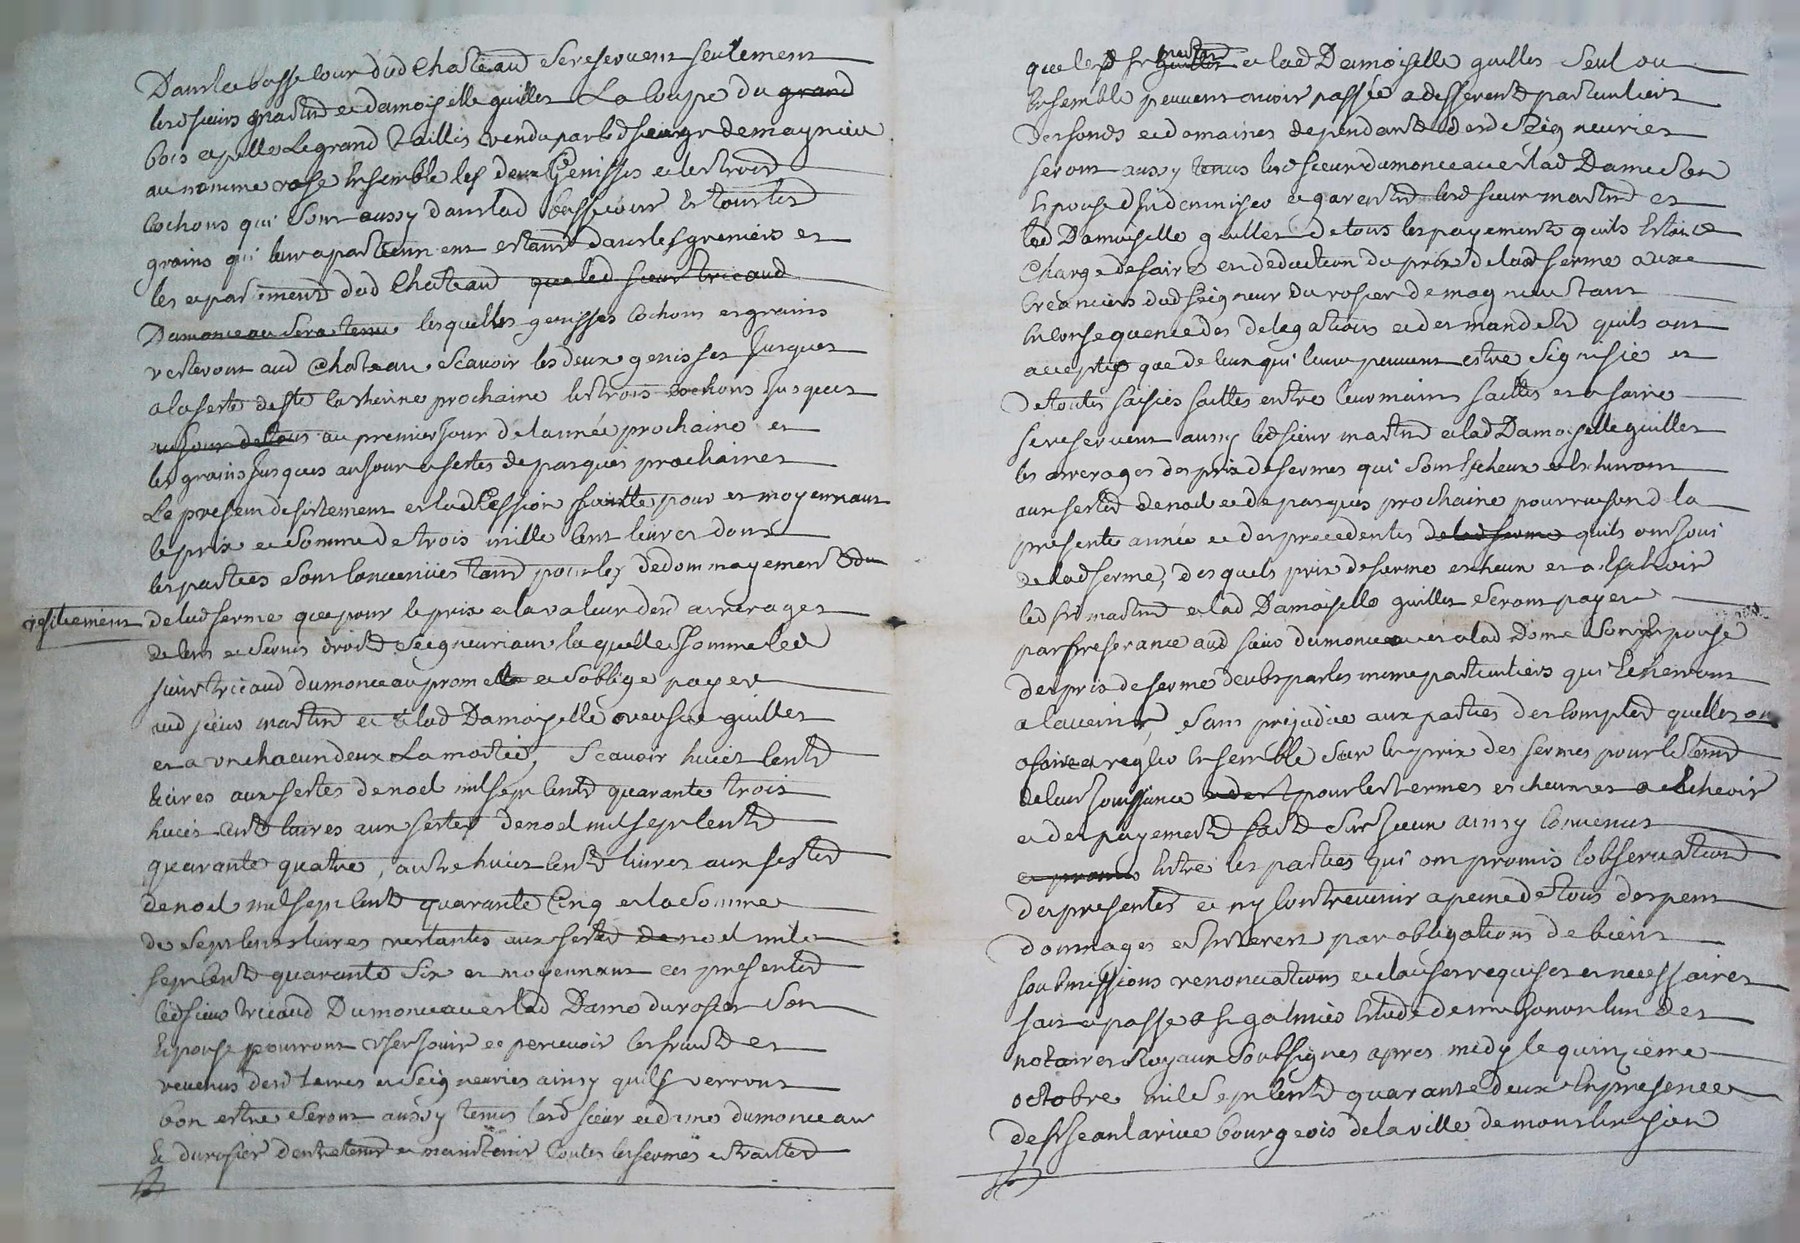 Dans la basse Cour dud Chateau Se reservent seulement
lesd sieurs martin et damoiselle guilles La Coupe du grand
bois apellé Le grand taillis vendu par led seigr de magnieu
au nommé rose Ensemble les deux Genisses et les trois
Cochons qui Sont aussy dans lad basse cour Et tous les
grains qui leur apartiennent estant dans les greniers et
les apartements dud Chateau que led sieur tricaud
Dumonceau Sera tenu lesquelles genisses Cochons et grains
resteront aud Chateau Scavoir les deux genisses Jusques
a la feste de Ste Catherine prochaine les trois cochons Jusques
au Jour de tous au premier Jour de l'année prochaine et
les grains Jusques au Jour et festes de pasques prochaines
Le present desistement et lad Cession faitte pour et moyennant
le prix et Somme de trois mille Cent livres dont
les parties Sont Convenües tant pour les dedommagement du
resiliement de lad ferme que pour le prix et la valeur desd arrerages
de Cens et Servis droits Seigneuriaux la quelle Somme led
sieur tricaud dumonceau promet et S'oblige payer
aud sieur martin et a lad Damoiselle veuve guilles
et a un chacun deux La moitié, Scavoir huict Cents
livres aux festes de noel mil sept Cents quarante trois
huict Cents livres aux festes de noel mil sept Cents
quarante quatre, autre huict Cents livres aux festes
de noel mil sept Cents quarante Cinq et la Somme
de Sept Cents livres restantes aux festes de noel mil
sept Cents quarante Six et moyennant ces presentes
led sieur tricaud Dumonceau et lad Dame durosier Son
Epouse pourront User Jouir et percevoir les fruits et
revenus desd terres et Seigneuries ainsy quils verront
bon estre Seront aussy tenus lesd sieur et dame dumonceau
Et durosier d'entretenir et maintenir toutes les fermes et traittes
que lesd sr martin et lad Damoiselle guilles Seul ou
Ensemble peuvent avoir passée a differents particuliers
des fonds et domaines dependants desd Seigneuries
seront aussy tenus lesd sieur dumonceau et lad Dame Son
Epouse d'indemniser et garentir lesd sieur martin et
lad Damoiselle guilles de tous les payements quils Estoient
Chargé de faire en deduction du prix de lad ferme aux
Creanciers dud Seigneur Du rosier de magnieu tant
En Consequence des delegations et des mandets quils ont
accepté que de Ceux qui leur peuvent estre Signifié et
de toutes saisies faittes entre leur mains faittes et a faire
se reservent aussy led sieur martin et lad Damoiselle guilles
les arrerages des prix de fermes qui Sont Echeux et Echerront
aux festes de noel et de pasques prochaine pour raison d la
presente année et des precedentes de lad ferme quils ont Joui
de lad ferme, des quels prix de ferme escheux et a Echeoir
led sr martin et lad Damoiselle guilles Seront payer
par preferance aud sieur dumonceau et a lad Dame Son Epouse
des prix de ferme deubs par les meme particuliers qui Echerront
a l'avenir, Sans prejudice aux parties des Comptes quelles on
a faire et regler Ensemble Sur les prix des fermes pour le temps
de leur Jouissance pour les termes escheus et a Echeoir
et des payements faits Sur Iceux ainsy Convenus
et promis Entre les parties qui ont promis l'observation
des presentes et n'y Contrevenir a peine de tous despens
dommages et Interest par obligations de biens
soubmissions renonciations et clauses requises et necessaires
fait et passé a St galmier Etude de me Lun des
notaires Royaux Soubsignes apres midy le quinzieme
octobre mil Sept Cents quarante deux En presence
de sr Jean larive bourgeois de la ville de montbrison